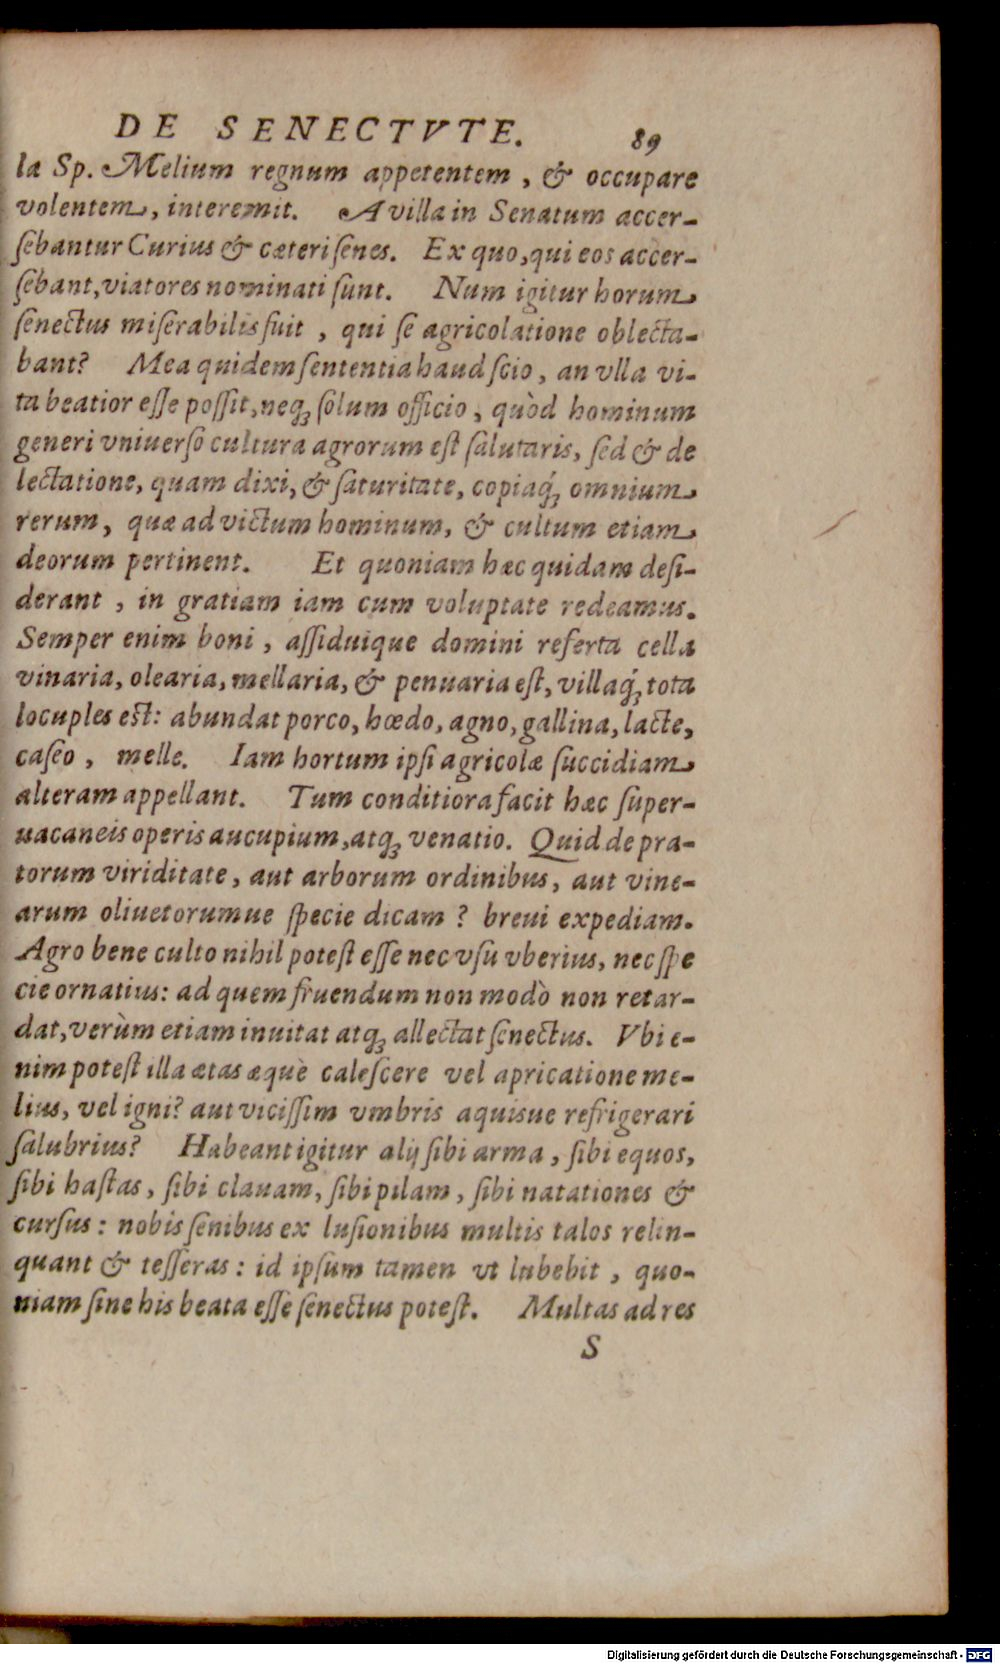 DE SENECTVTE. 89
la Sp. Melium regnum appetentem, & occupare
volentem, interemit. A villa in Senatum accer-
ſebantur Curius & cæteri ſenes. Ex quo, qui eos accer-
ſebant, viatores nominati ſunt. Num igitur horum
ſenectus miſerabilis fuit, qui ſe agricolatione oblecta-
bant? Mea quidem ſententia haud ſcio, an vlla vi-
ta beatior eſſe poſſit, neqꝫ ſolum officio, quòd hominum
generi vniuerſo cultura agrorum eſt ſalutaris, ſed & de
lectatione, quam dixi, & ſaturitate, copiaq́ꝫ omnium
rerum, quæ ad victum hominum, & cultum etiam
deorum pertinent. Et quoniam hæc quidam deſi-
derant, in gratiam iam cum voluptate redeamus.
Semper enim boni, aſſiduique domini referta cella
vinaria, olearia, mellaria, & penuaria eſt, villaq́ꝫ tota
locuples eſt: abundat porco, hœdo, agno, gallina, lacte,
caſeo, melle. Iam hortum ipſi agricolæ ſuccidiam
alteram appellant. Tum conditiora facit hæc ſuper-
uacaneis operis aucupium, atqꝫ venatio. Quid de pra-
torum viriditate, aut arborum ordinibus, aut vine-
arum oliuetorumue ſpecie dicam? breui expediam.
Agro bene culto nihil poteſt eſſe nec vſu vberius, nec ſpe
cie ornatius: ad quem fruendum non modò non retar-
dat, verùm etiam inuitat atqꝫ allectat ſenectus. Vbi e-
nim poteſt illa ætas æquè caleſcere vel apricatione me-
lius, vel igni? aut viciſſim vmbris aquisue refrigerari
ſalubrius? Habeant igitur alij ſibi arma, ſibi equos,
ſibi haſtas, ſibi clauam, ſibi pilam, ſibi natationes &
curſus: nobis ſenibus ex luſionibus multis talos relin-
quant & teſſeras: id ipſum tamen vt lubebit, quo-
niam ſine his beata eſſe ſenectus poteſt. Multas ad res
S
Digitalisierung gefördert durch die Deutsche Forschungsgemeinschaft - DFG